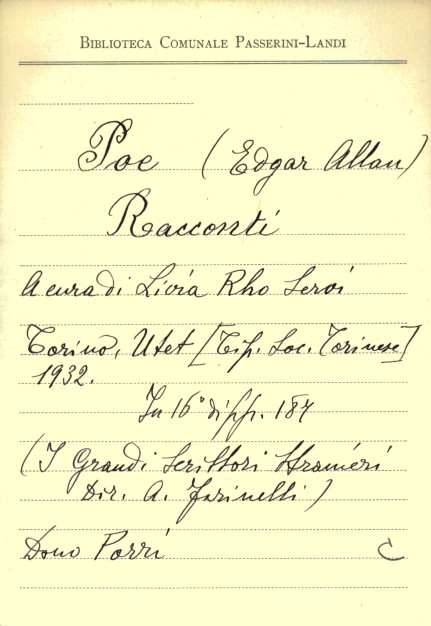 BIBLIOTECA COMUNALE PASSERINI-LANDI
Poe (Edgar Allan)
Racconti
A cura di Livia Rho Servi
Torino, Utet [Tip. Soc. Torinese]
1932.
In 16° di pp. 187
(I Grandi Scrittori Stranieri
Dir. A. Farinelli)
Dono Porri C